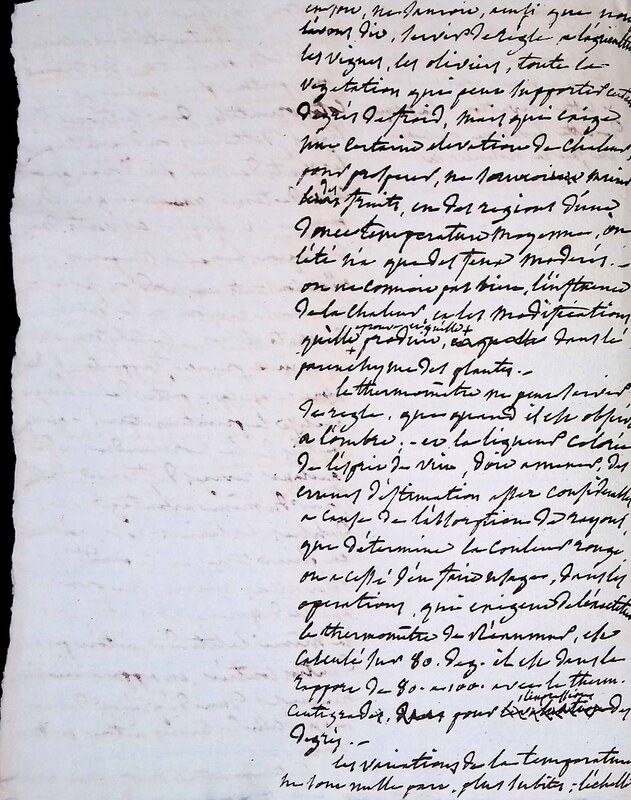 ne sauroit, ainsi que nous
l'avons dit, servir de règle
les vignes, les oliviers, toute la
vegetation qui peut supporter
degrés de froid, mais qui exige
une certaine elevation de chaleur
pour prosperer, ne
fruits, en des regions d'une
douce temperature moyenne, où
l'été n'a que des feux moderés. -
on ne connoit pas bien, l'influence
de la chaleur, et les modifications
qu'elle produit, dans le
parenchyme des plantes. -
le thermomètre ne peut servir
de règle, que quand il est observé
a l'ombre. - et la liqueur colorée
de l'esprit de vin, doit amener des
erreurs d'estimation assez considerables
a cause de l'absorption de rayons
que détermine la couleur rouge
on a cessé d'en faire usage, dans les
operations, qui exigent de l'exactitude
le thermomètre de Réaumur, est
calculé sur 80. deg. il est dans le
rapport de 80. a 100. avec le therm.
centigrade, pour l'expression des
degrés. -
les variations de la temperature
ne sont nulle part, plus subites, l'échelle